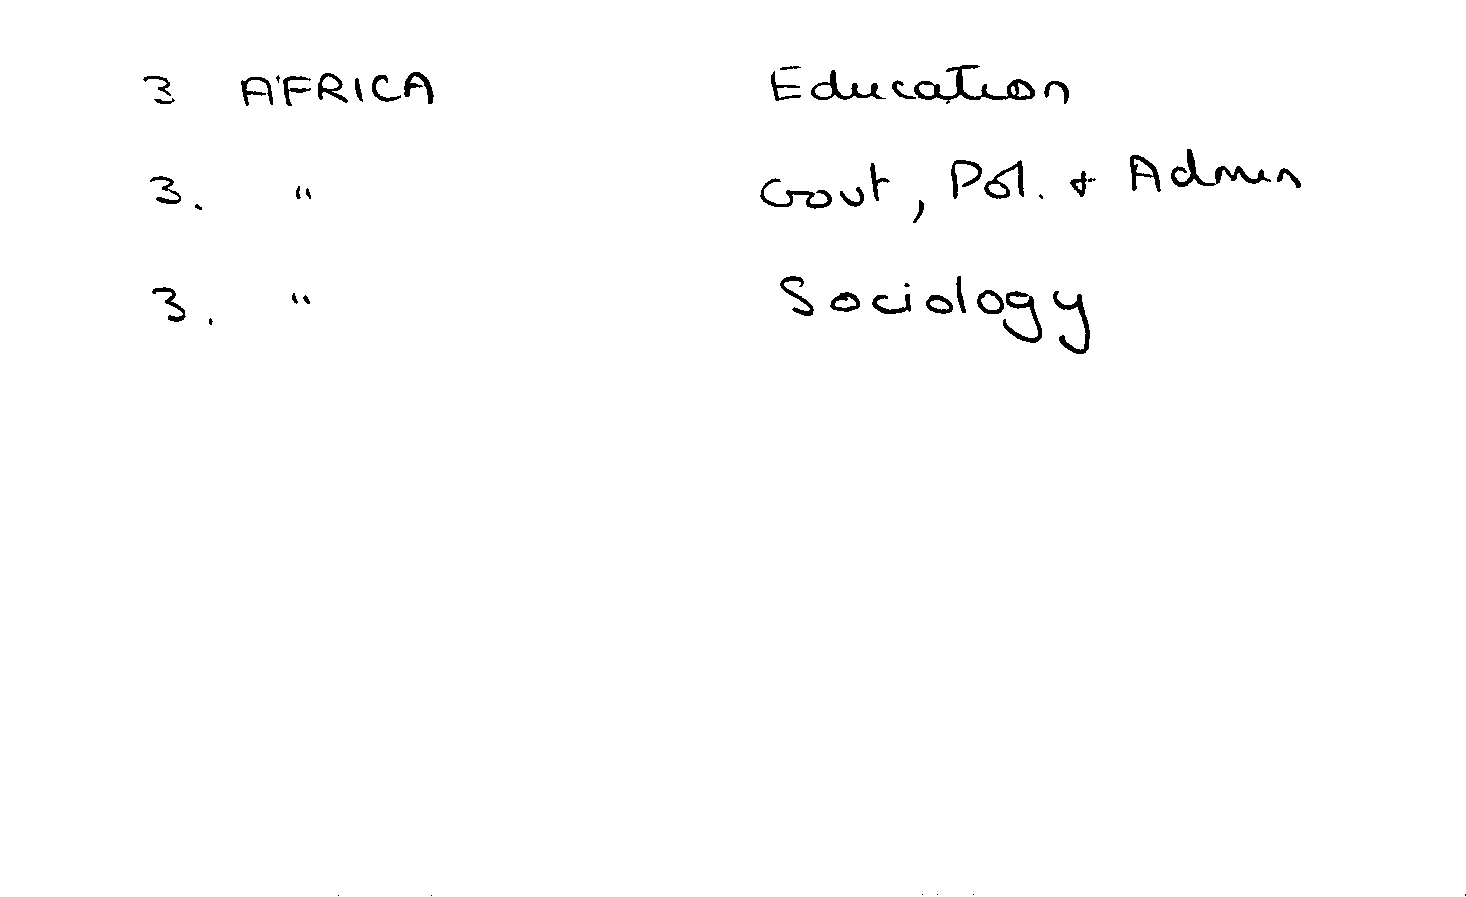 3 AFRICA Education
3. " Govt, Pol. + Admin
3. " Sociology